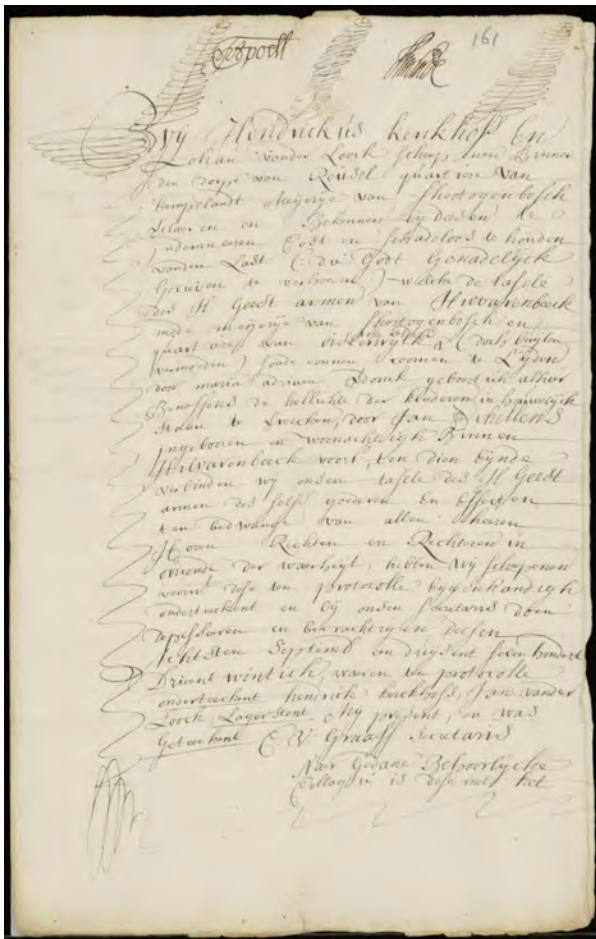 161
Wij Hendrickus kerckhofs En
Johan vander Loock schepenen Binnen
den dorpe van Reusel quartiere van
kempelandt Meijerije van Shertogenbosch
Bekennen bij desen te
indemneren Cost en schadeloos te houden
vanden Last (: die Godt Genadelijck
Gelieven te verhoeden :) welcke de tafele
des H. Geest armen van Hilvarenbeeck
mede meijerije van Shertogenbosch en
quartiere van oisterwijk (dats buijten
vermoeden) soude connen coomen te Lijden
door maria adriaen geboortich alhier
Benessens de kinderen in houwelijck
staen te verwecken, door Jan Schellens
ingebooren en woonachtigh Binnen
Hilvarenbeeck voorst, ten dien Eijnde
verbinden wij onsen tafele des H. Geest
armen des selfs goederen En Effecten
ten bedwange van allen heeren
Hoven Rechten en Rechteren in
oirconde der waerheijt, hebben wij schepenen
voornt dese ten protocolle eijgenhandigh
onderteeckent en bij onsen secretaris doen
depescheren en becrachtigen desen
Achtsten Septemb een duijsent seven hondert
Drient wintich, waeren ten protocolle
onderteeckent hendrick kerckhofs, Jan vander
Loock, Lager stont Mij present, en was
Geteeckent C. V. Graaff Secretaris
Naer Gedane Behoorlijcke
Collatie is dese met het